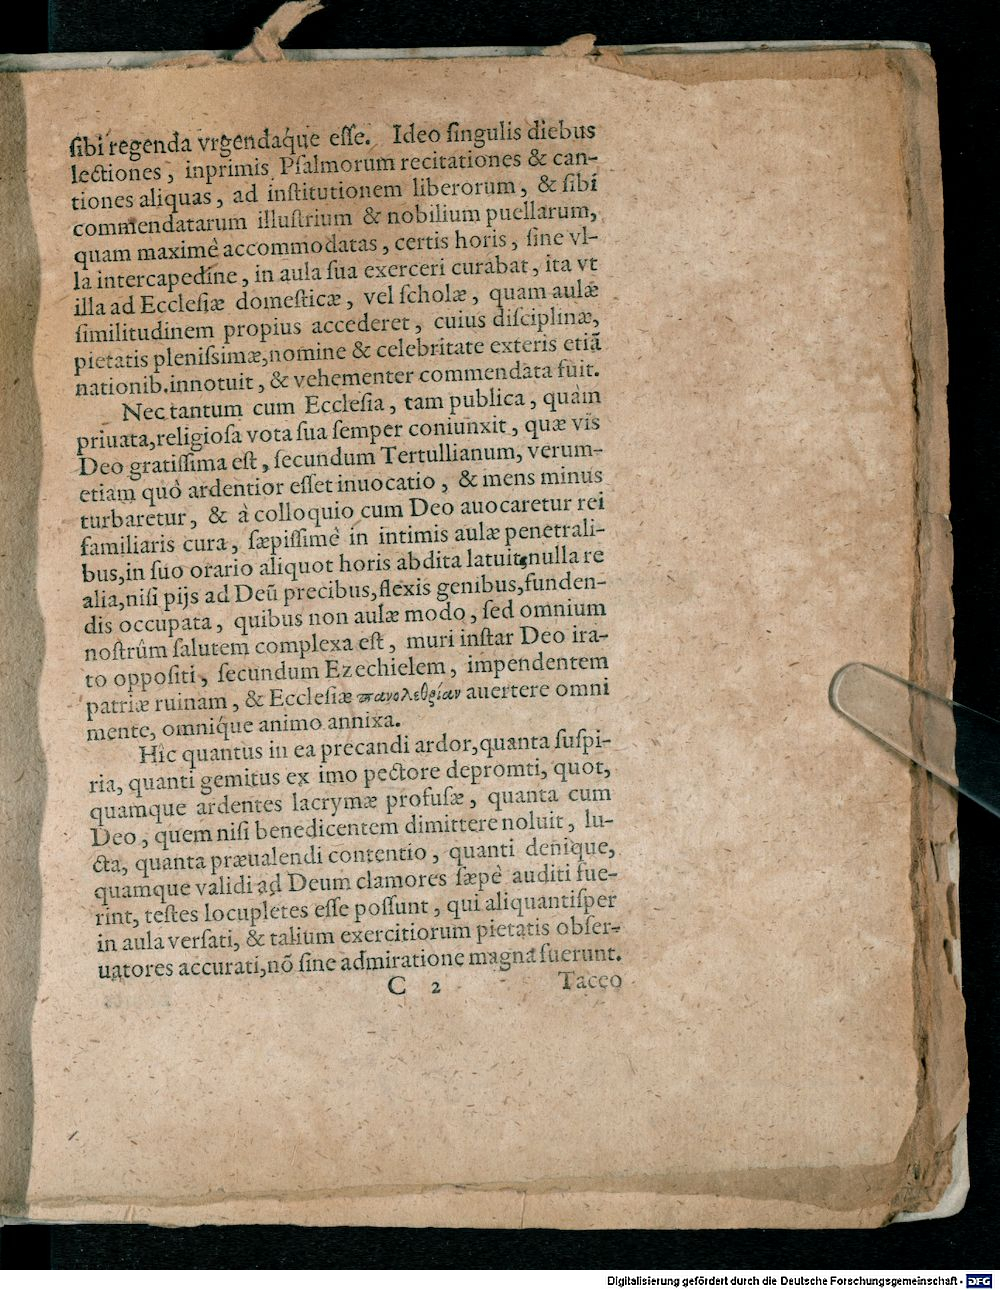 ſibi regenda vrgendaq́ue eſſe. Ideo ſingulis diebus
lectiones, inprimis Pſalmorum recitationes & can-
tiones aliquas, ad inſtitutionem liberorum, & ſibi
commendatarum illuſtrium & nobilium puellarum,
quam maximè accommodatas, certis horis, ſine vl-
la intercapedine, in aula ſua exerceri curabat, ita vt
illa ad Eccleſiæ domeſticæ, vel ſcholæ, quam aulæ
ſimilitudinem propius accederet, cuius diſciplinæ,
pietatis pleniſsimæ, nomine & celebritate exteris etiã
nationib. innotuit, & vehementer commendata fuit.
Nec tantum cum Eccleſia, tam publica, quàm
priuata, religioſa vota ſua ſemper coniunxit, quæ vis
Deo gratiſſima eſt, ſecundum Tertullianum, verum-
etiam quò ardentior eſſet inuocatio, & mens minus
turbaretur, & à colloquio cum Deo auocaretur rei
familiaris cura, ſæpiſſimè in intimis aulæ penetrali-
bus, in ſuo orario aliquot horis abdita latuit, nulla re
alia, niſi pijs ad Deũ precibus, flexis genibus, funden-
dis occupata, quibus non aulæ modo, ſed omnium
noſtrûm ſalutem complexa eſt, muri inſtar Deo ira-
to oppoſiti, ſecundum Ezechielem, impendentem
patriæ ruinam, & Eccleſiæ πανολεθρίαν auertere omni
mente, omniq́ue animo annixa.
Hic quantus in ea precandi ardor, quanta ſuſpi-
ria, quanti gemitus ex imo pectore depromti, quot,
quamque ardentes lacrymæ profuſæ, quanta cum
Deo, quem niſi benedicentem dimittere noluit, lu-
cta, quanta præualendi contentio, quanti denique,
quamque validi ad Deum clamores ſæpè auditi fue-
rint, teſtes locupletes eſſe poſſunt, qui aliquantiſper
in aula verſati, & talium exercitiorum pietatis obſer-
uatores accurati, nõ ſine admiratione magna fuerunt.
C 2 Taceo
Digitalisierung gefördert durch die Deutsche Forschungsgemeinschaft - DFG